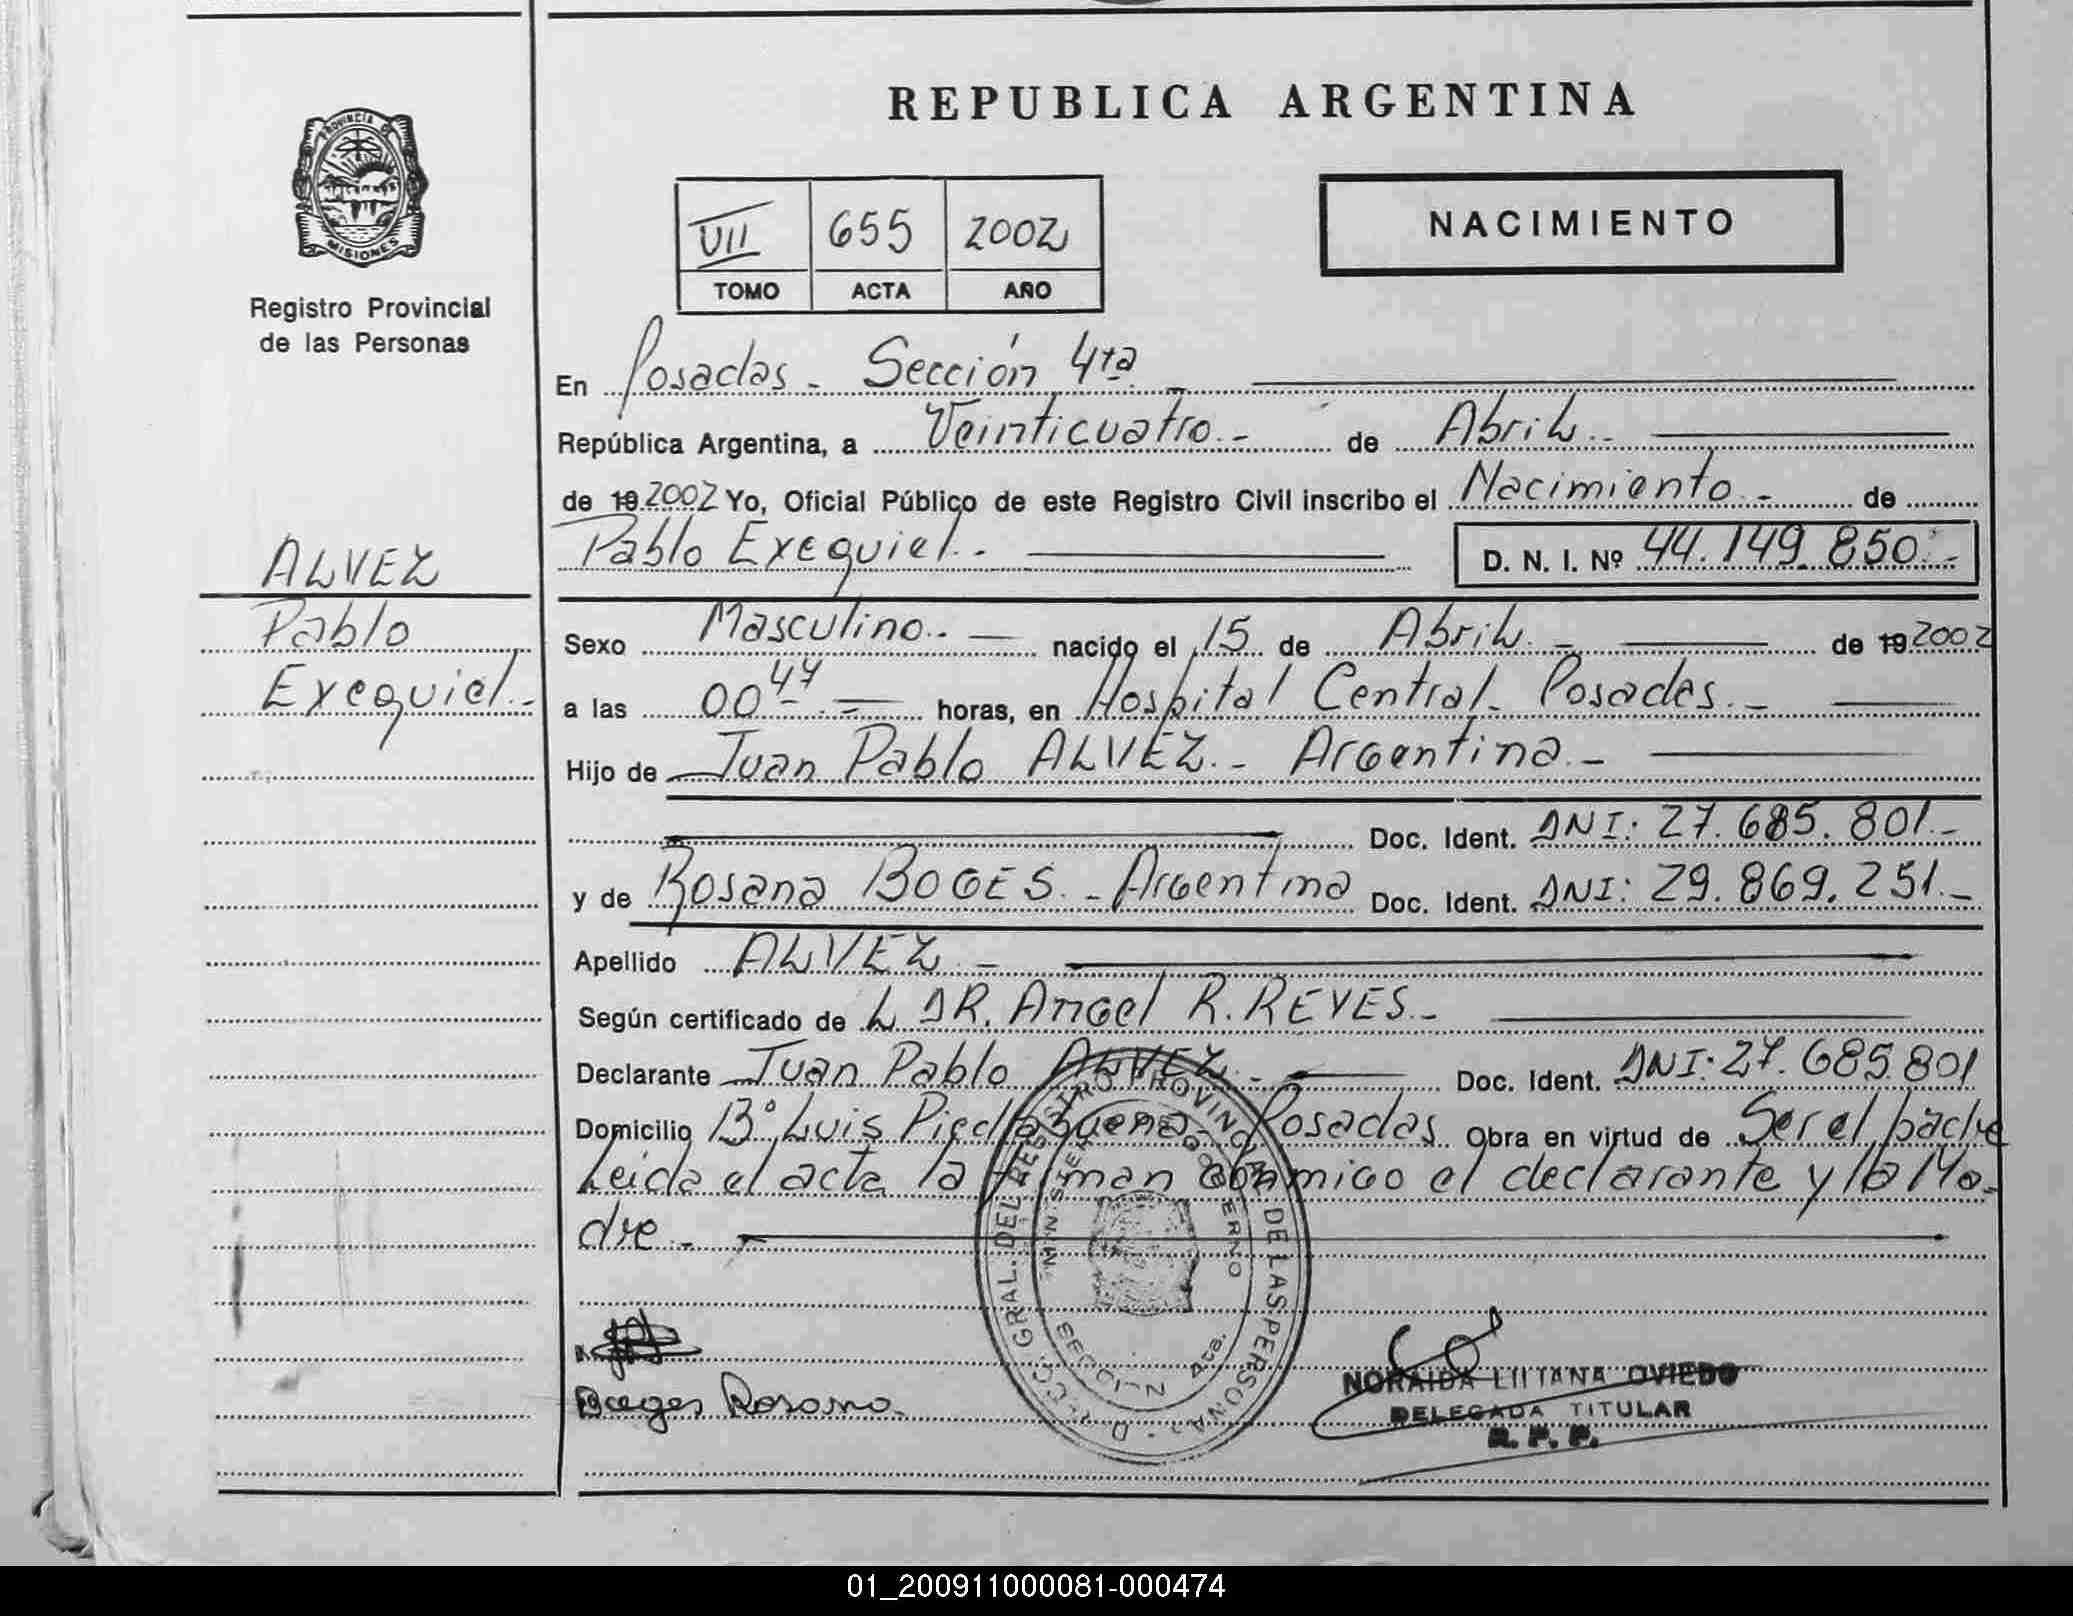 REPUBLICA ARGENTINA
PROVINCIA DE
MISIONES
Registro Provincial
de las Personas
VII 655 2002
TOMO ACTA AÑO
NACIMIENTO
En Posadas - Sección 4ta -
República Argentina, a Veinticuatro.- de Abril.-
de 19 2002 Yo, Oficial Público de este Registro Civil inscribo el Nacimiento.- de
Pablo Exequiel.- D. N. I. Nº 44.149.850.-
ALVEZ
Pablo
Exequiel.-
Sexo Masculino.- nacido el 15 de Abril.- de 19 2002
a las 00 47 horas, en Hospital Central - Posadas.-
Hijo de Juan Pablo ALVEZ.- Argentina.-
Doc. Ident. DNI: 27.685.801.-
y de Rosana BOGES.- Argentina Doc. Ident. DNI: 29.869.251.-
Apellido ALVEZ.-
Según certificado de L DR. Angel R. REYES.-
Declarante Juan Pablo ALVEZ.- Doc. Ident. DNI: 27.685.801
Domicilio Bº Luis Piedrabuena - Posadas Obra en virtud de Ser el padre
Leida el acta la firman conmigo el declarante y la Ma-
dre.-
DIRECC. GRAL. DEL REGISTRO PROVINCIAL DE LAS PERSONAS
MINISTERIO DE GOBIERNO
SECCION 4ta.
Boges Rosana.
NORAIDA LILIANA OVIEDO
DELEGADA TITULAR
R. P. P.
01_200911000081-000474